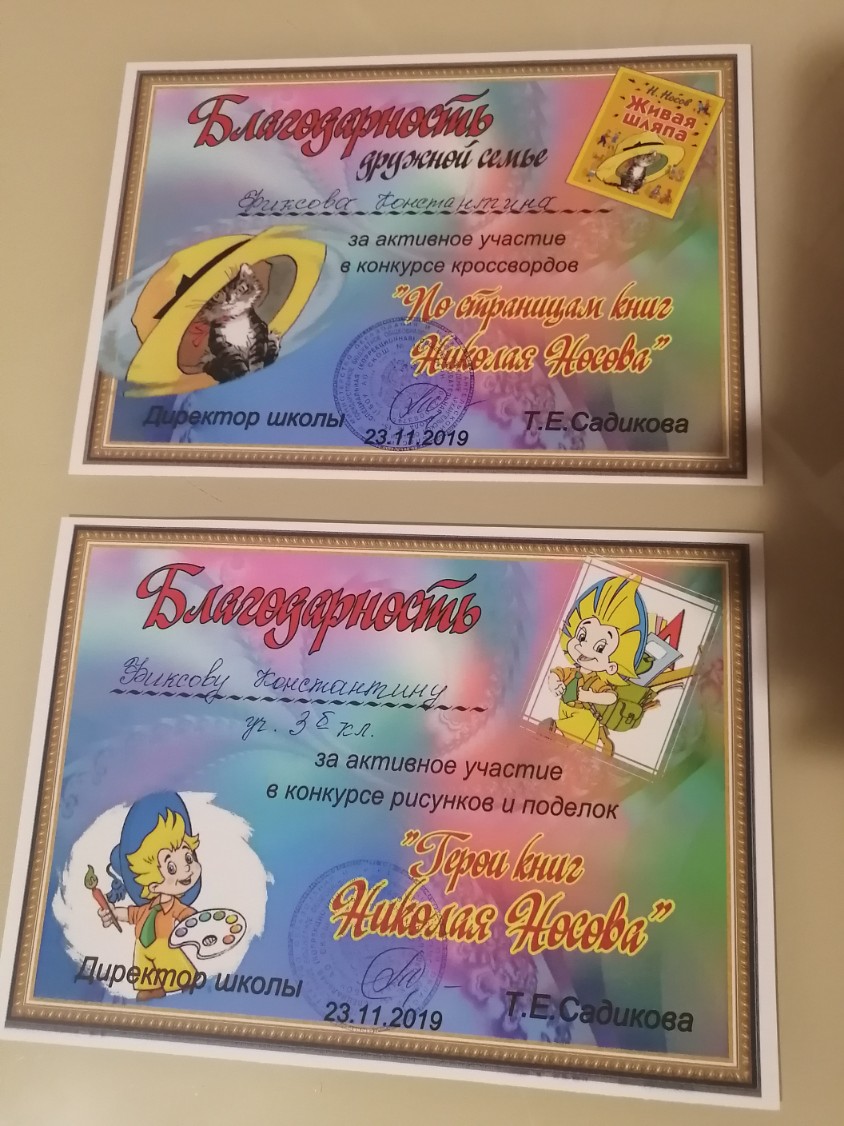 Благодарность
дружной семье
Н. Носов
Живая
шляпа
Фиксова Константина
за активное участие
в конкурсе кроссвордов
"По страницам книг
Николая Носова"
Директор школы
23.11.2019
Т.Е.Садикова
Благодарность
Фиксову Константину
уч. 3 Б кл.
за активное участие
в конкурсе рисунков и поделок
"Герои книг
Николая Носова"
Директор школы
23.11.2019
Т.Е.Садикова